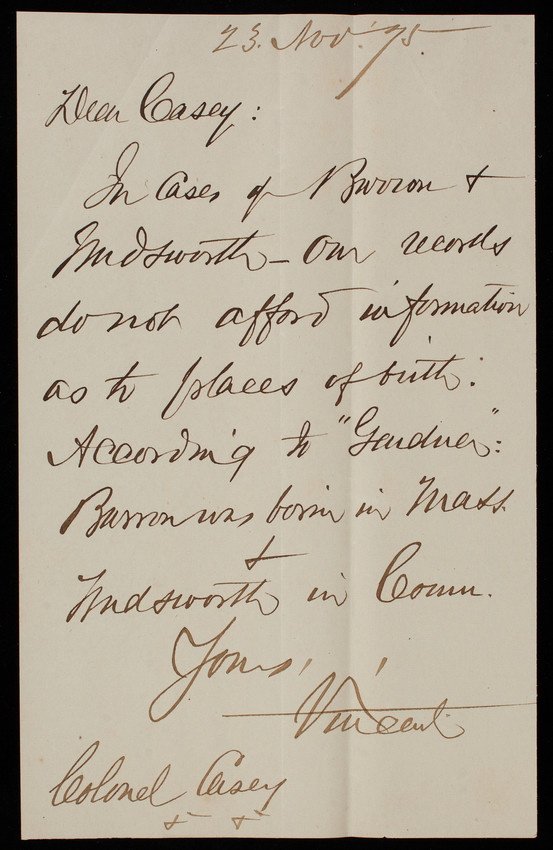 23. Nov. 75.
Dear Casey:
In Cases of Burron &
Wadsworth – Our records
do not afford information
as to places of birth:
According to "Gardner":
Burron was born in Mass.
&
Wadsworth in Conn.
Yours,
Vincent
Colonel Casey